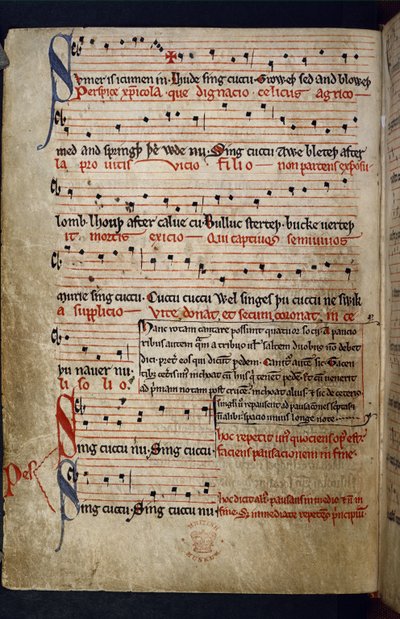 Sumer is icumen in. Lhude sing cuccu. Groweþ sed and bloweþ
Perspice xpicola. que dignacio. celicus agrico
med and springþ þe wde nu. Sing cuccu Awe bleteþ after
la pro uitis uicio filio non parcens exposu
lomb. lhouþ after calue cu. Bulluc sterteþ. bucke uerteþ
it mortis exicio Qui captiuos semiuiuos
murie sing cuccu. Cuccu cuccu Wel singes þu cuccu ne swik
a supplicio Vite donat. et secum coronat. in ce
þu nauer nu.
li solio
Hanc rotam cantare possunt quatuor socii. A paucio
ribus autem a tribus uel saltem duobus non debet
dici. preter eos qui dicunt pedem. Canitur autem sic. Tacen
tibus ceteris unus inchoat cum hiis qui tenent pedem. et cum uenerit
ad primam notam post crucem. inchoat alius. et sic de ceteris.
singuli repausent ad pausaciones scriptas
non alibi. spacio unius longe note.
Pes
Sing cuccu nu. Sing cuccu.
hoc repetit unus quociens opus est.
faciens pausacionem in fine.
Sing cuccu. Sing cuccu nu
hoc dicit alius. pausans in medio et non in
fine. Set immediate repetens principium.
BRITISH
MUSEUM